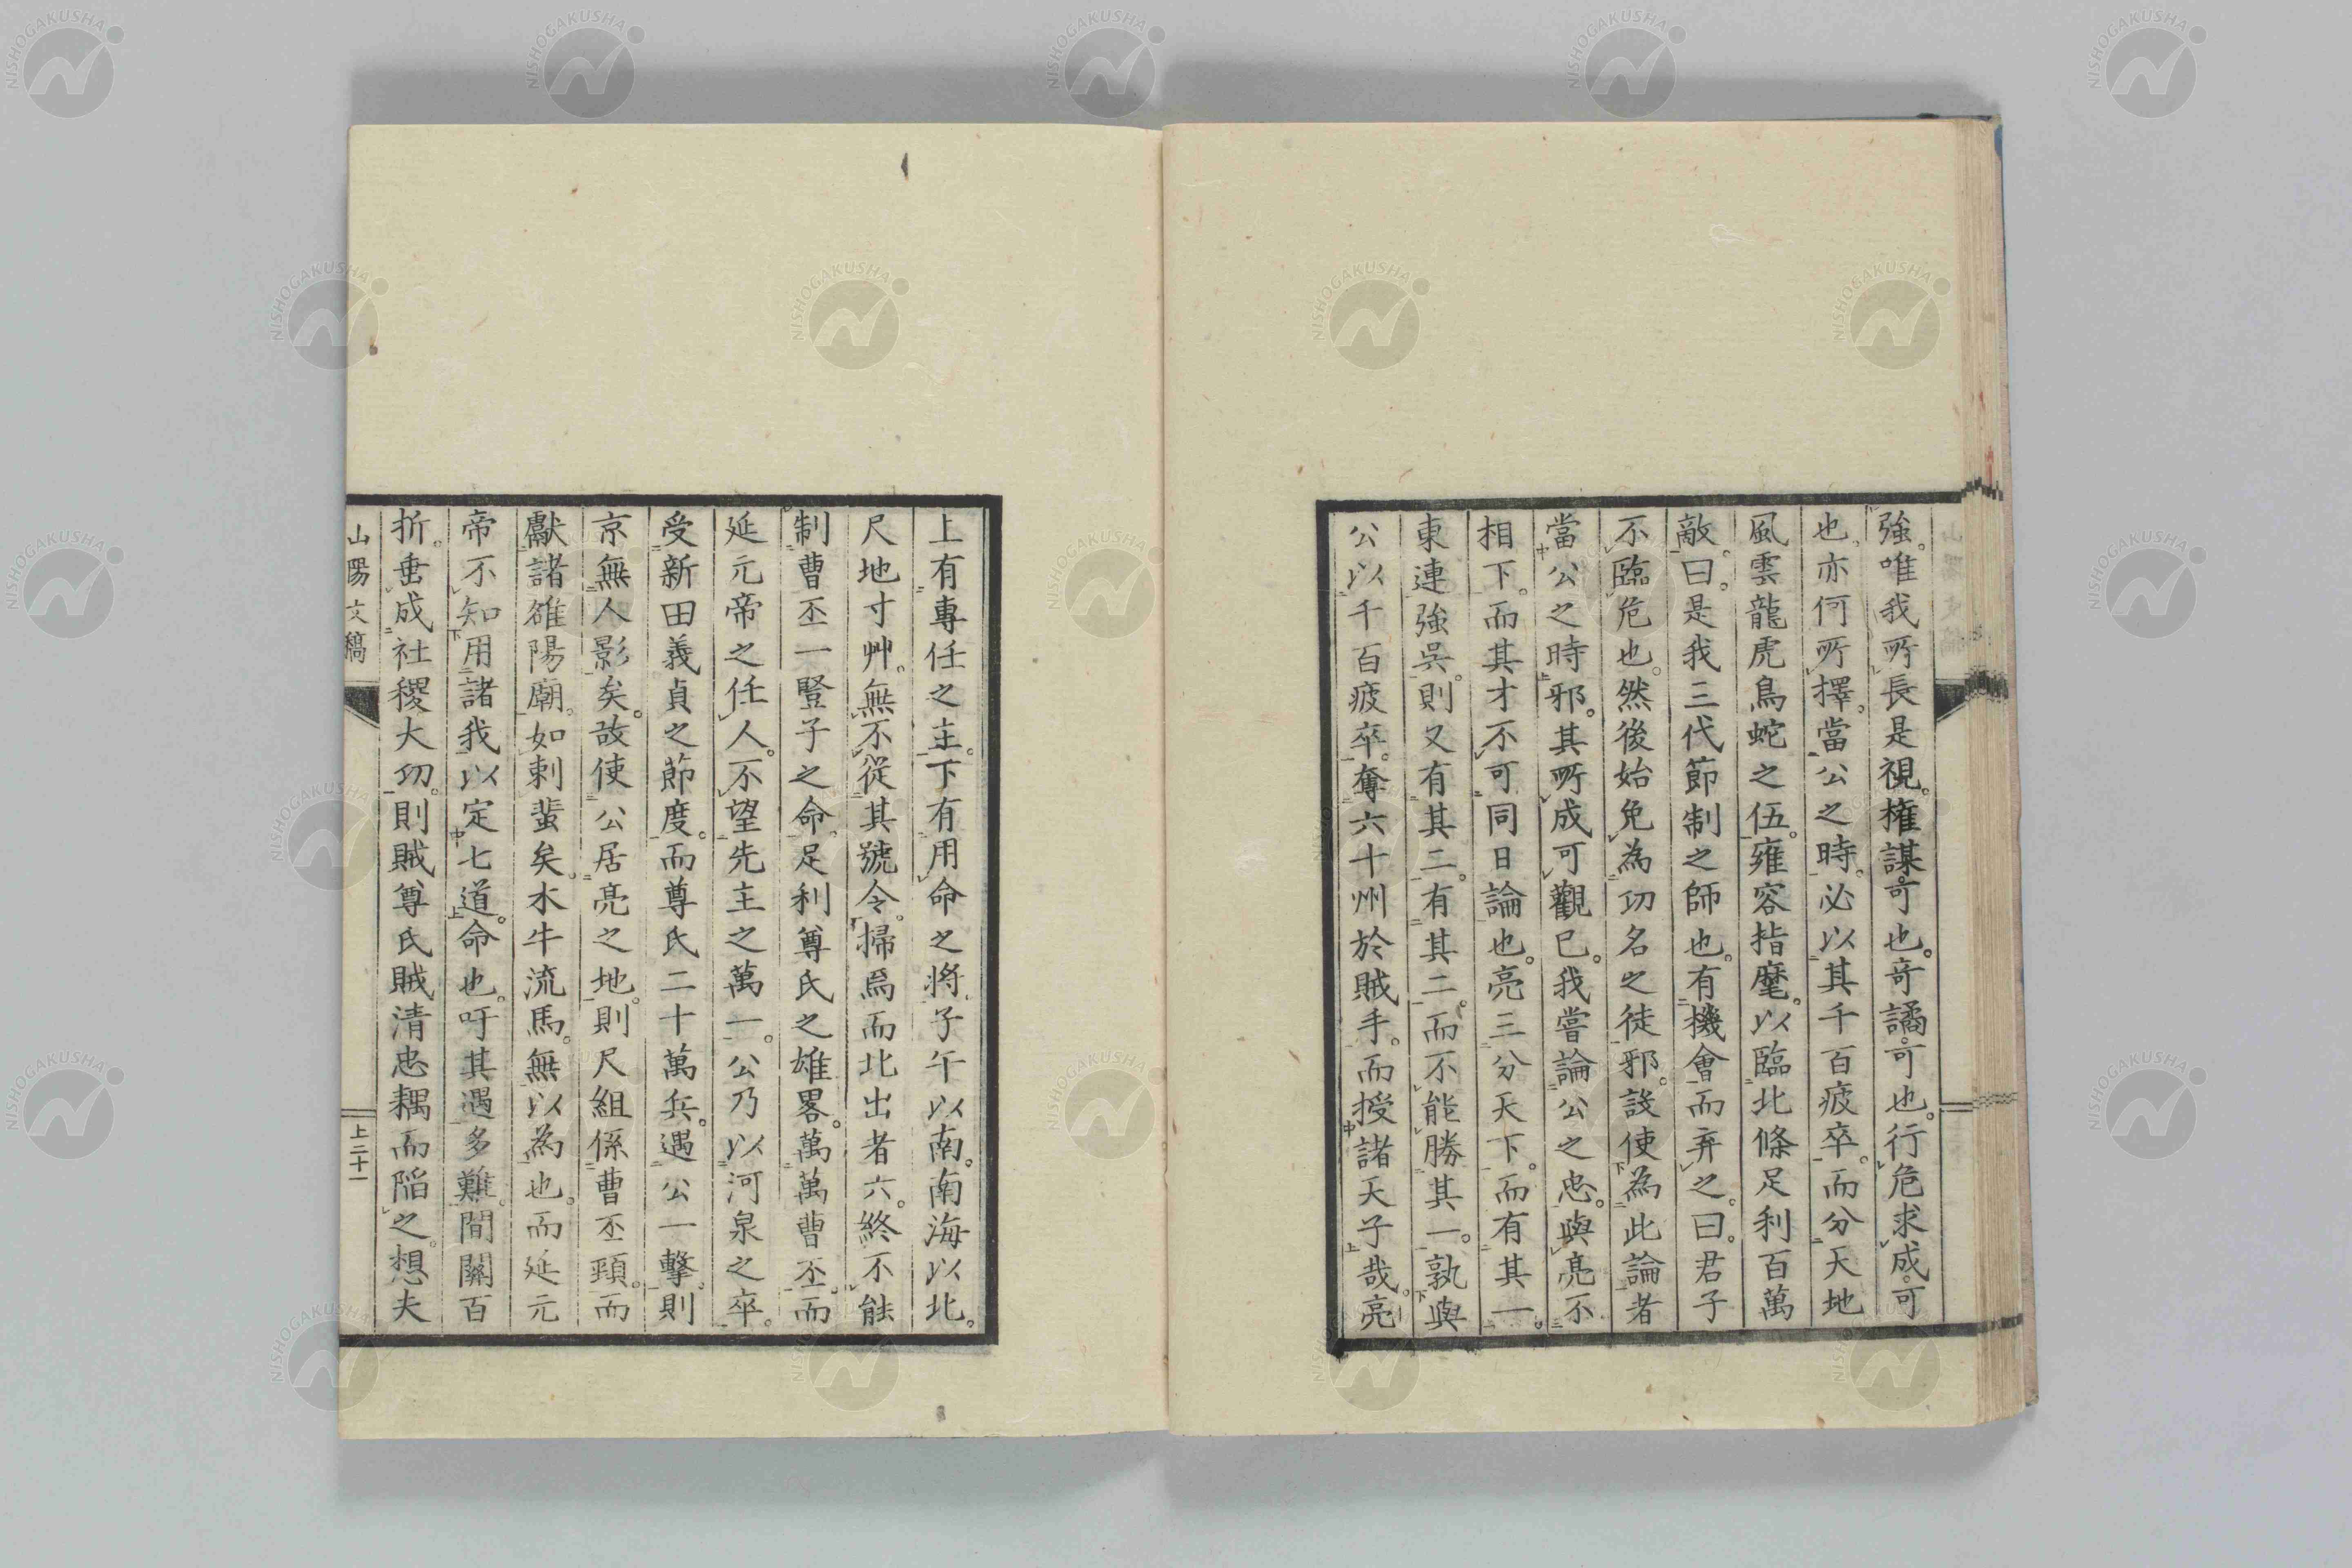 強。唯我所長是視。権謀可也。奇譎可也。行危求成。可
也。亦何所擇。當公之時。必以其千百疲卒。而分天地
風雲龍虎鳥蛇之伍。雍容指麾。以臨北條足利百萬
敵。曰。是我三代節制之師也。有機會而弃之。曰。君子
不臨危也。然後始免為功名之徒邪。設使為此論者
當公之時邪。其所成可觀已。我嘗論公之忠。與亮不
相下。而其才不可同日論也。亮三分天下。而有其一。
東連強吳。則又有其二。有其二。而不能勝其一。孰與
公以千百疲卒。奪六十州於賊手。而授諸天子哉。亮
上有專任之主。下有用命之將。子午以南。南海以北。
尺地寸艸。無不從其號令。掃焉而北出者六。終不能
制曹丕一豎子之命。足利尊氏之雄畧。萬萬曹丕。而
延元帝之任人。不望先主之萬一。公乃以河泉之卒。
受新田義貞之節度。而尊氏二十萬兵。遇公一擊。則
京無人影矣。故使公居亮之地。則尺組係曹丕頸。而
獻諸雒陽廟。如刺蜚矣。木牛流馬。無以為也。而延元
帝不知用諸我以定七道。命也。吁其遇多難。間關百
折。垂成社稷大功。則賊尊氏賊清忠耦而陷之。想夫
山陽文稿
上二十一
NISHOGAKUSHA